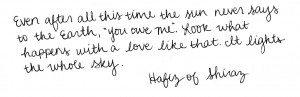 Even after all this time the sun never says
to the Earth, "you owe me". Look what
happens with a love like that. It lights
the whole sky.
Hafiz of Shiraz